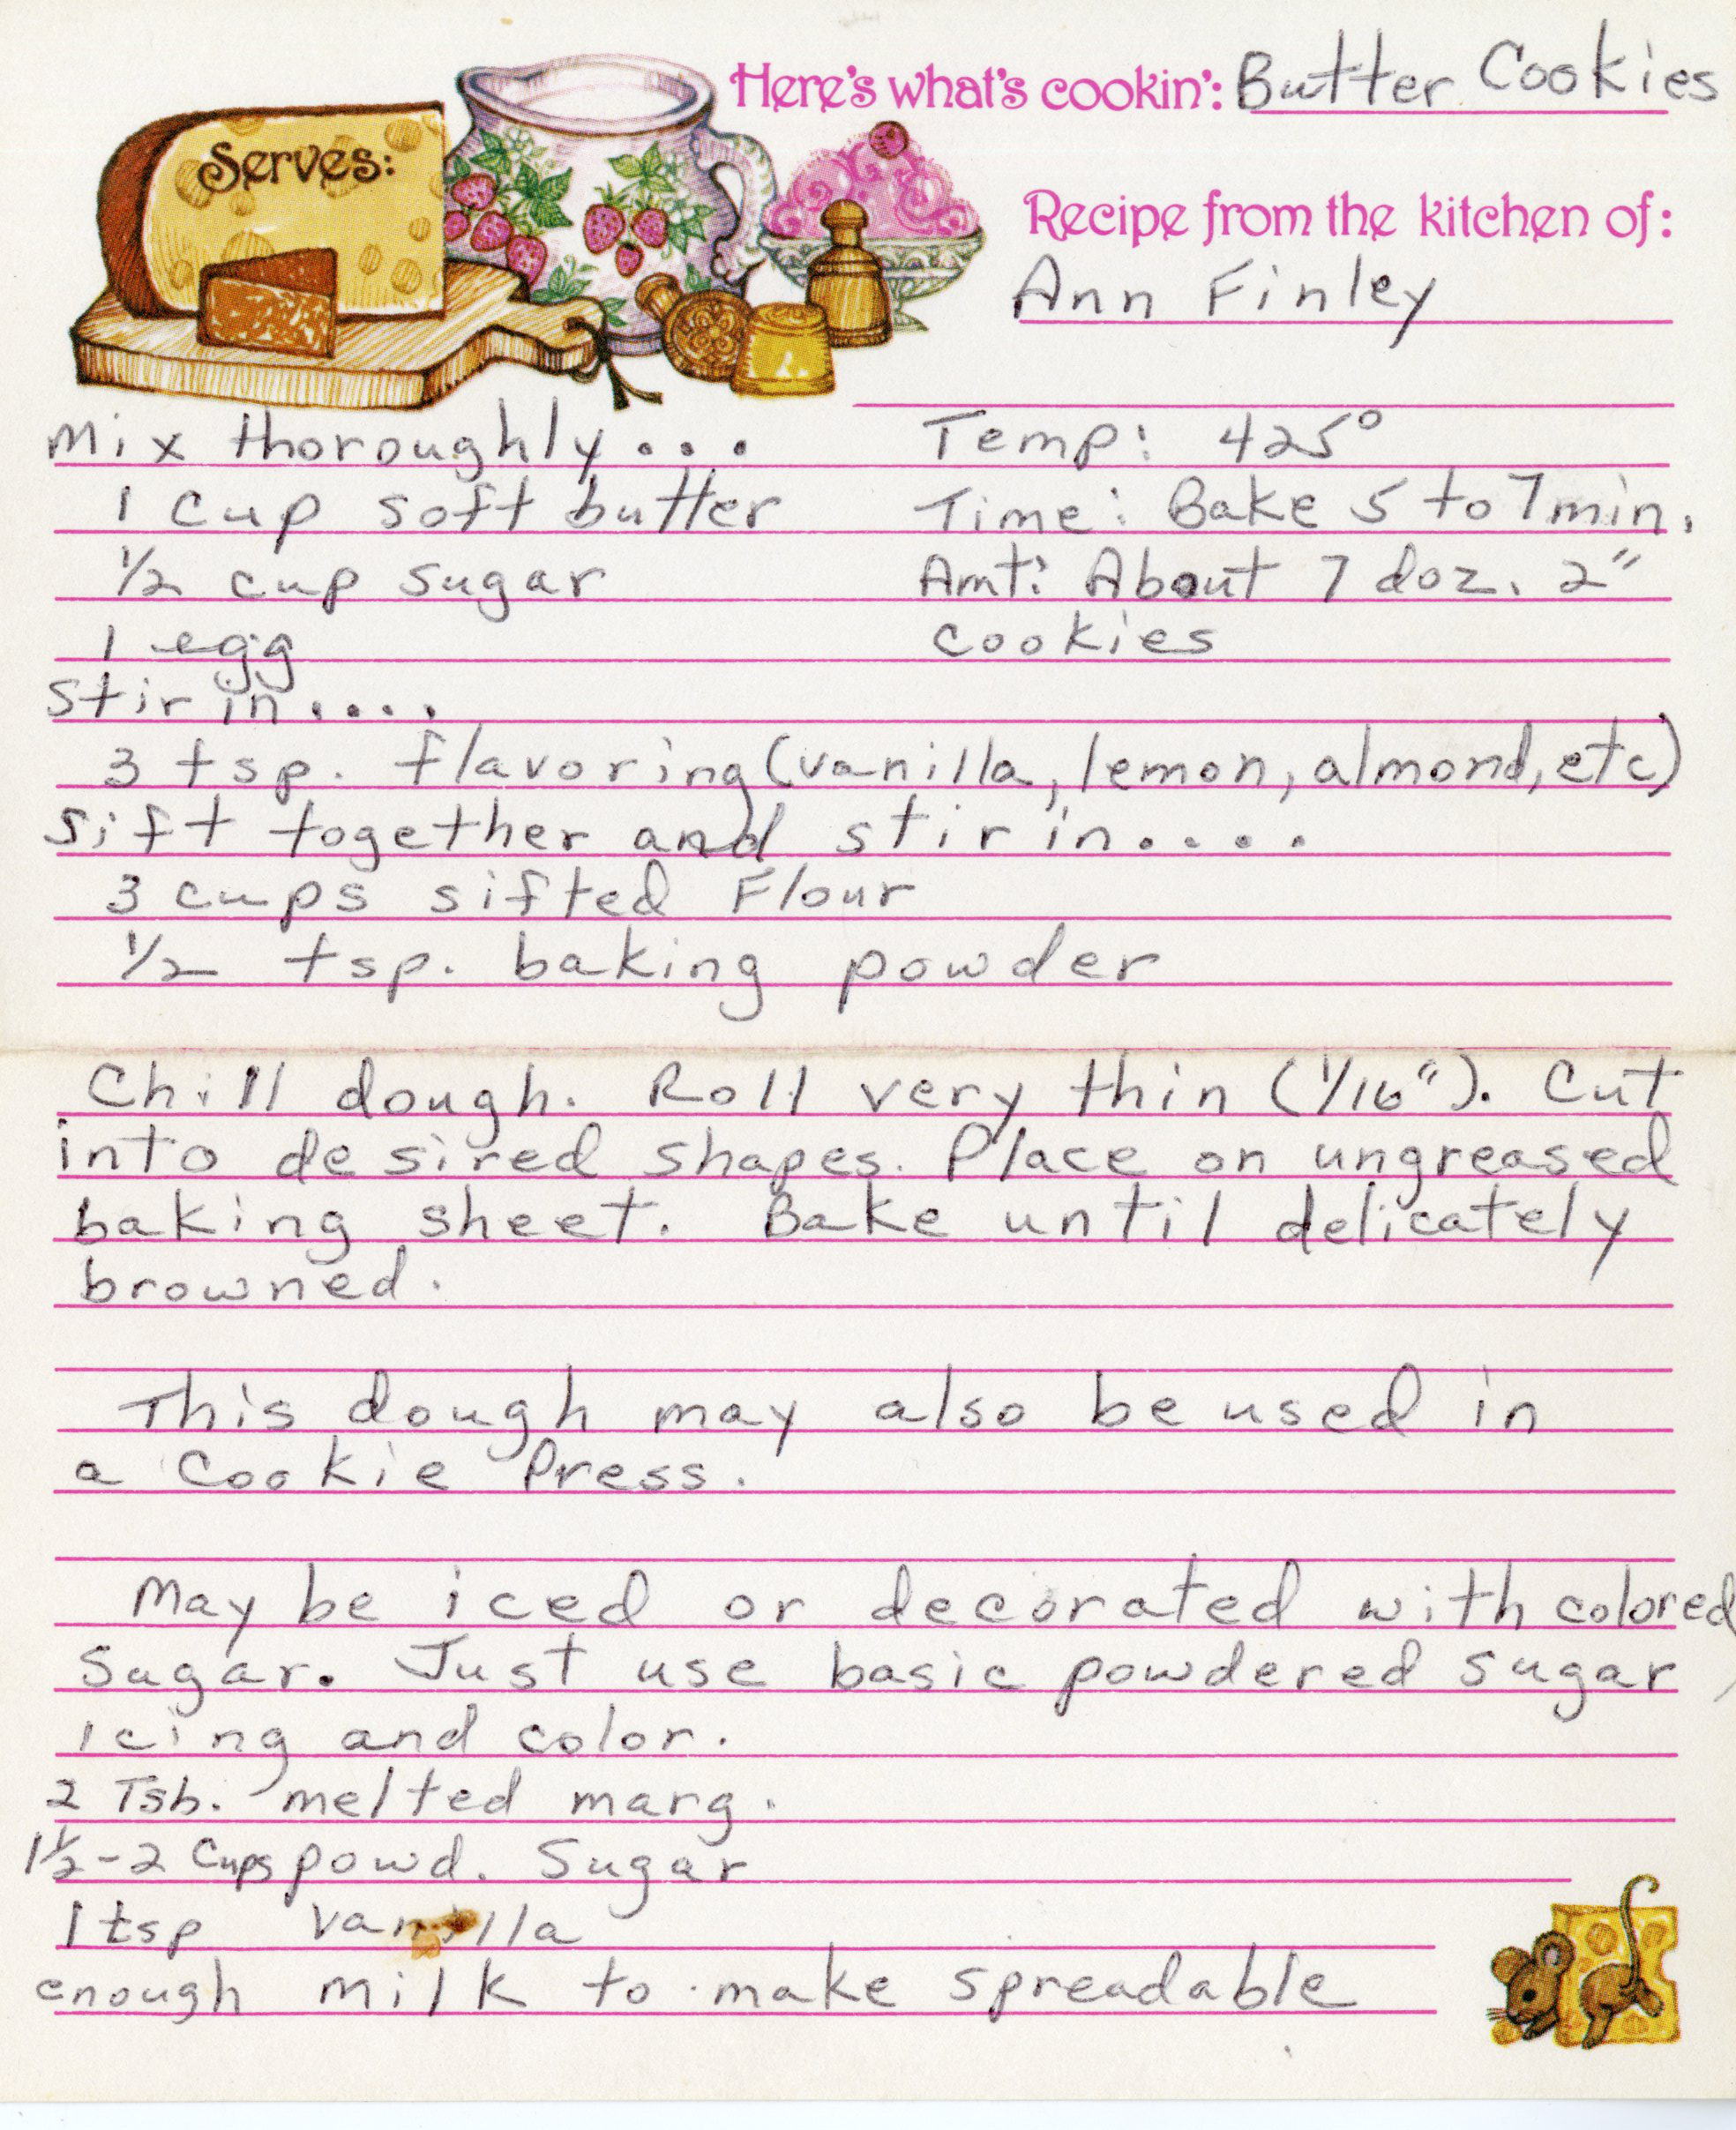 Here's what's cookin': Butter Cookies
Serves:
Recipe from the kitchen of:
Ann Finley
Mix thoroughly...
1 cup soft butter
1/2 cup sugar
1 egg
Temp: 425°
Time: Bake 5 to 7 min.
Amt: About 7 doz. 2"
cookies
Stir in....
3 tsp. flavoring (vanilla, lemon, almond, etc)
Sift together and stir in....
3 cups sifted Flour
1/2 tsp. baking powder
Chill dough. Roll very thin (1/16"). Cut
into desired shapes. Place on ungreased
baking sheet. Bake until delicately
browned.
This dough may also be used in
a Cookie Press.
May be iced or decorated with colored
Sugar. Just use basic powdered sugar,
icing and color.
2 Tsb. melted marg.
1 1/2 - 2 Cups powd. Sugar
1 tsp vanilla
enough milk to make spreadable